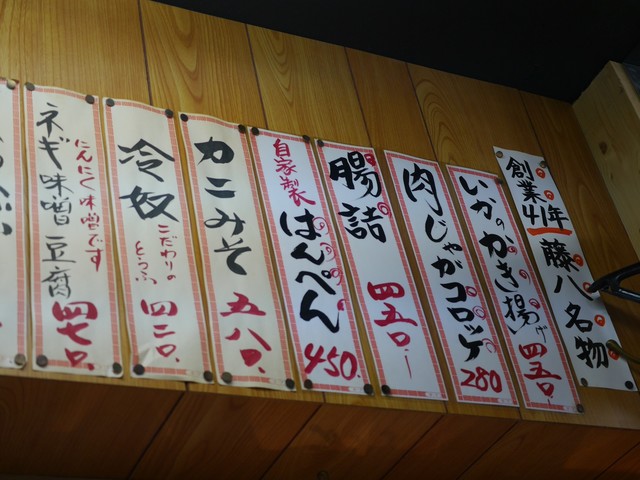 創業41年
藤八名物
いかのかき揚げ
四五〇ー
肉じゃがコロッケ
280
腸詰
四五〇ー
自家製
はんぺん
450.
カニみそ
五八〇.
冷奴
こだわりの
とうふ
四二〇.
にんにく味噌です
ネギ味噌豆腐
四七〇.